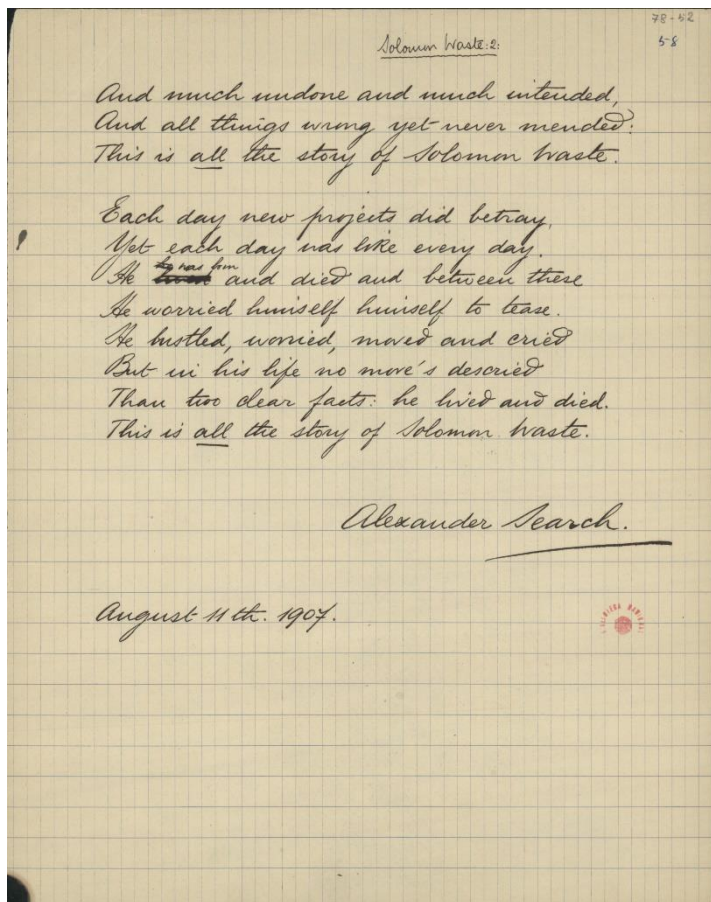 78-52
58
Solomon Waste: 2:
And much undone and much intended,
And all things wrong yet never mended:
This is all the story of Solomon Waste.
Each day new projects did betray,
Yet each day was like every day.
He was born and died and between these
He worried himself himself to tease.
He bustled, worried, moved and cried
But in his life no more's descried
Than two clear facts: he lived and died.
This is all the story of Solomon Waste.
Alexander Search.
August 11th. 1907.